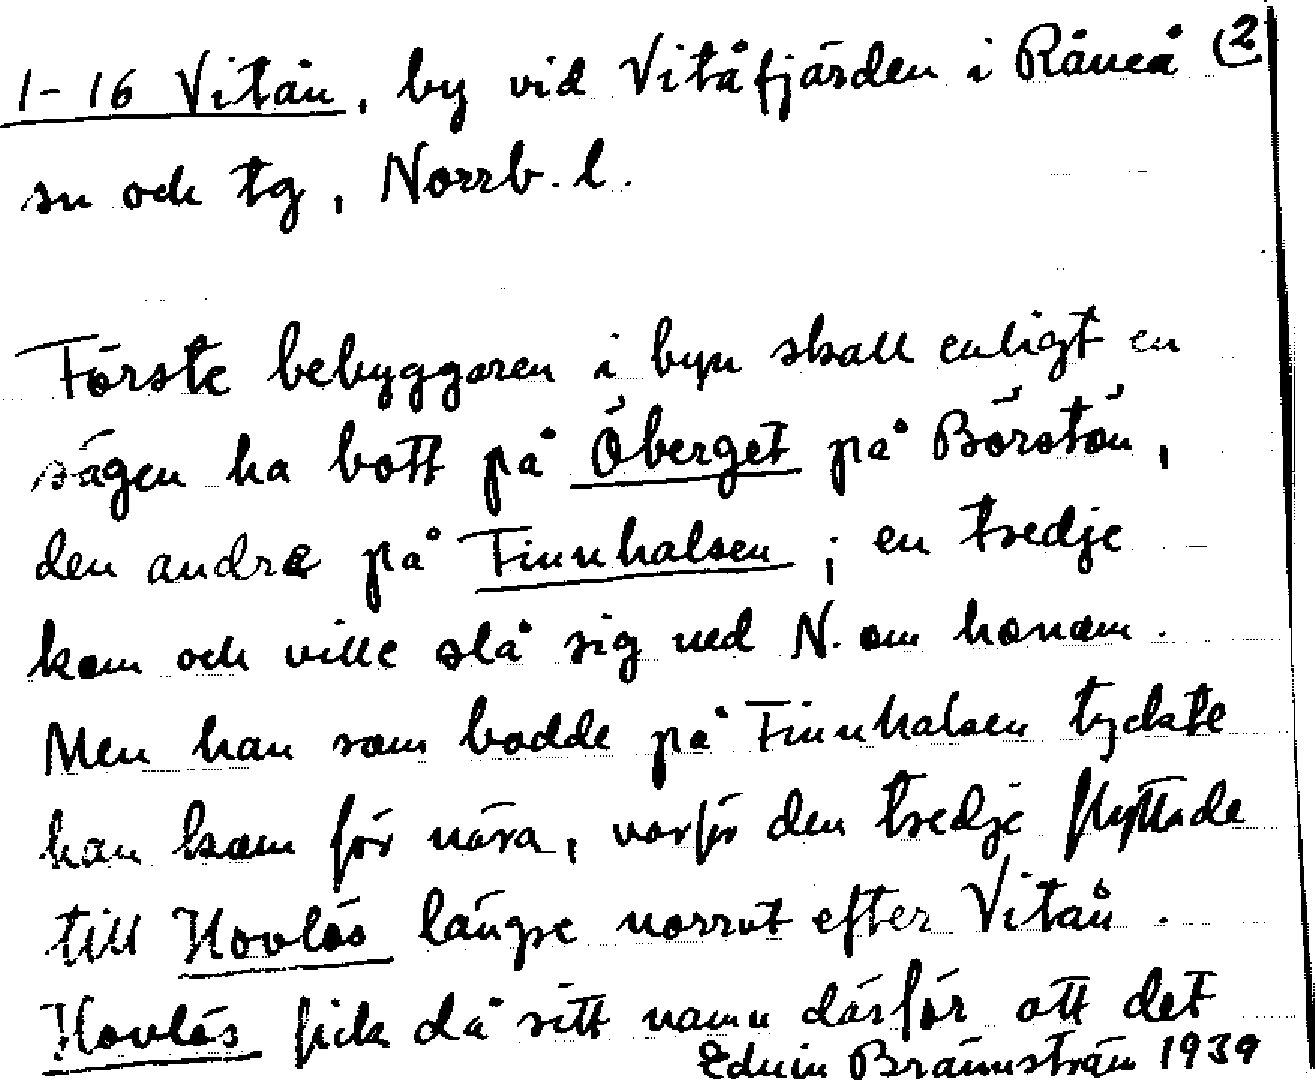 1-16 Vitån, by vid Vitåfjärden i Råneå (2
sn och tg, Norrb. l.
Förste bebyggaren i byn skall enligt en
sägen ha bott på Öberget på Börstön,
den andra på Finnhalsen; en tredje
kom och ville slå sig ned N. om honom.
Men han som bodde på Finnhalsen tyckte
han kom för nära, varför den tredje flyttade
till Hovlös längre norrut efter Vitån.
Hovlös fick då sitt namn därför att det
Edvin Brännström 1939